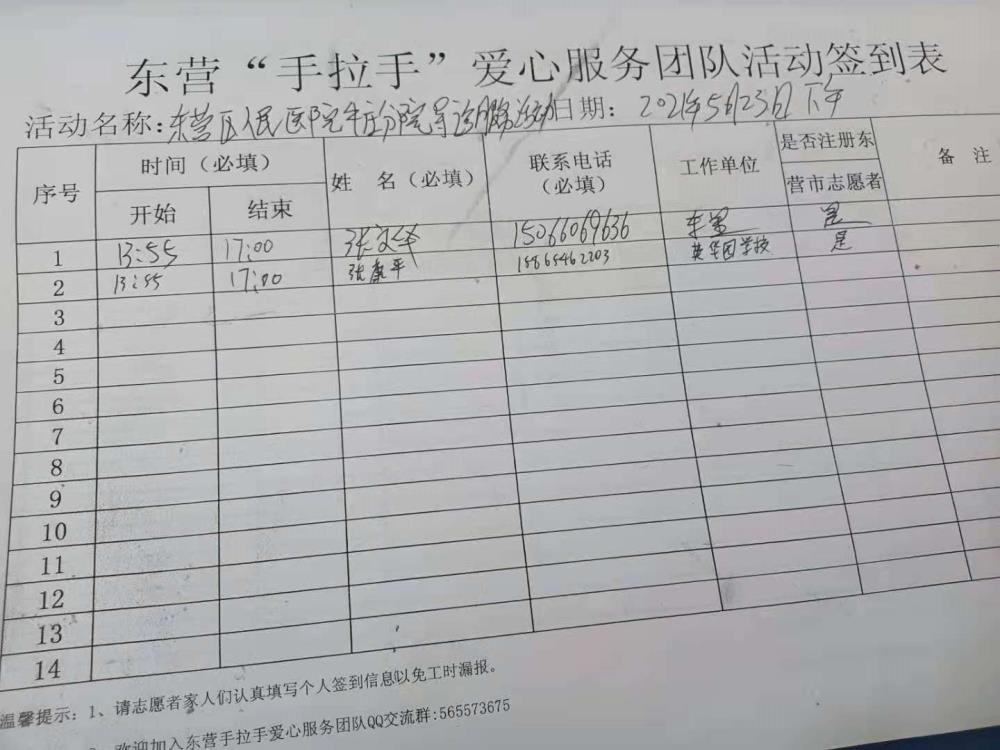 东营“手拉手”爱心服务团队活动签到表
活动名称:东营区人民医院牛庄分院导诊服务活动日期: 2021年5月23日下午
序号 时间（必填） 姓 名（必填） 联系电话（必填） 工作单位 是否注册东营市志愿者 备 注
开始 结束
1 13:55 17:00 张文华 15066069636 是
2 13:55 17:00 张康平 英华园学校 是
3
4
5
6
7
8
9
10
11
12
13
14
温馨提示: 1、请志愿者家人们认真填写个人签到信息以免工时漏报。
欢迎加入东营手拉手爱心服务团队QQ交流群:565573675